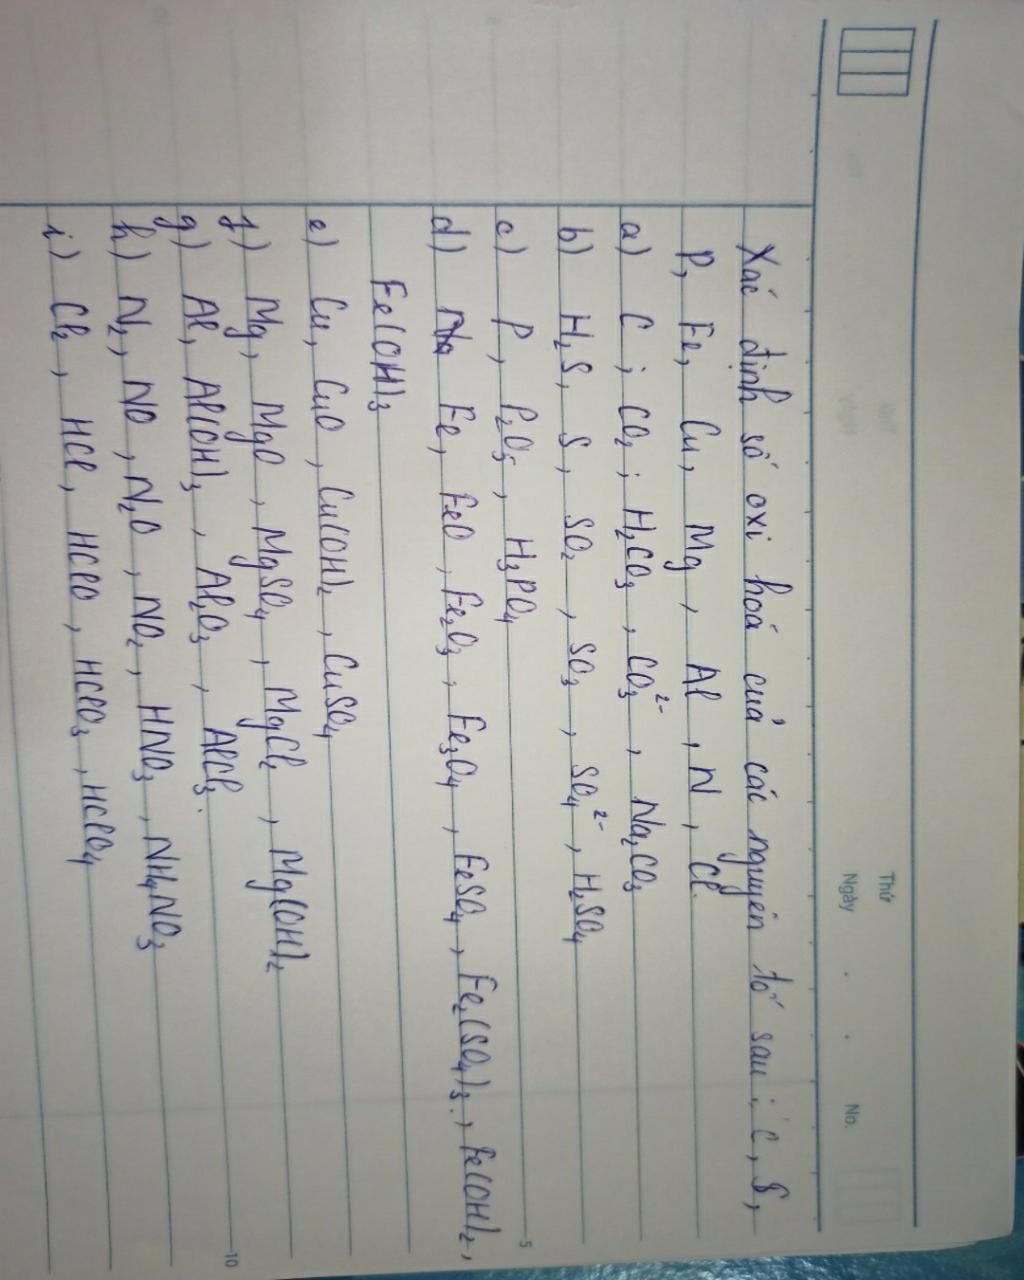 Thứ
Ngày . . No.
Xác định số oxi hoá của các nguyên tố sau : C, S,
P, Fe, Cu, Mg, Al, N, Cl.
a) C ; CO₂ ; H₂CO₃ , CO₃²⁻ , Na₂CO₃
b) H₂S, S, SO₂ , SO₃ , SO₄²⁻ , H₂SO₄
c) P, P₂O₅ , H₃PO₄
5
d) Fe, FeO , Fe₂O₃ , Fe₃O₄ , FeSO₄ , Fe₂(SO₄)₃. , Fe(OH)₂ ,
Fe(OH)₃
e) Cu, CuO , Cu(OH)₂ , CuSO₄
f) Mg, MgO , MgSO₄ , MgCl₂ , Mg(OH)₂
g) Al, Al(OH)₃ , Al₂O₃ , AlCl₃.
10
h) N₂, NO , N₂O , NO₂ , HNO₃ , NH₄NO₃
i) Cl₂ , HCl, HClO , HClO₃ , HClO₄